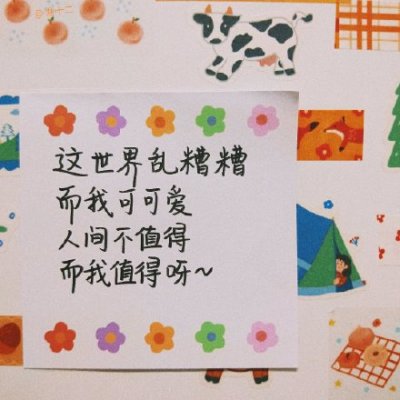 这世界乱糟糟
而我可可爱
人间不值得
而我值得呀～